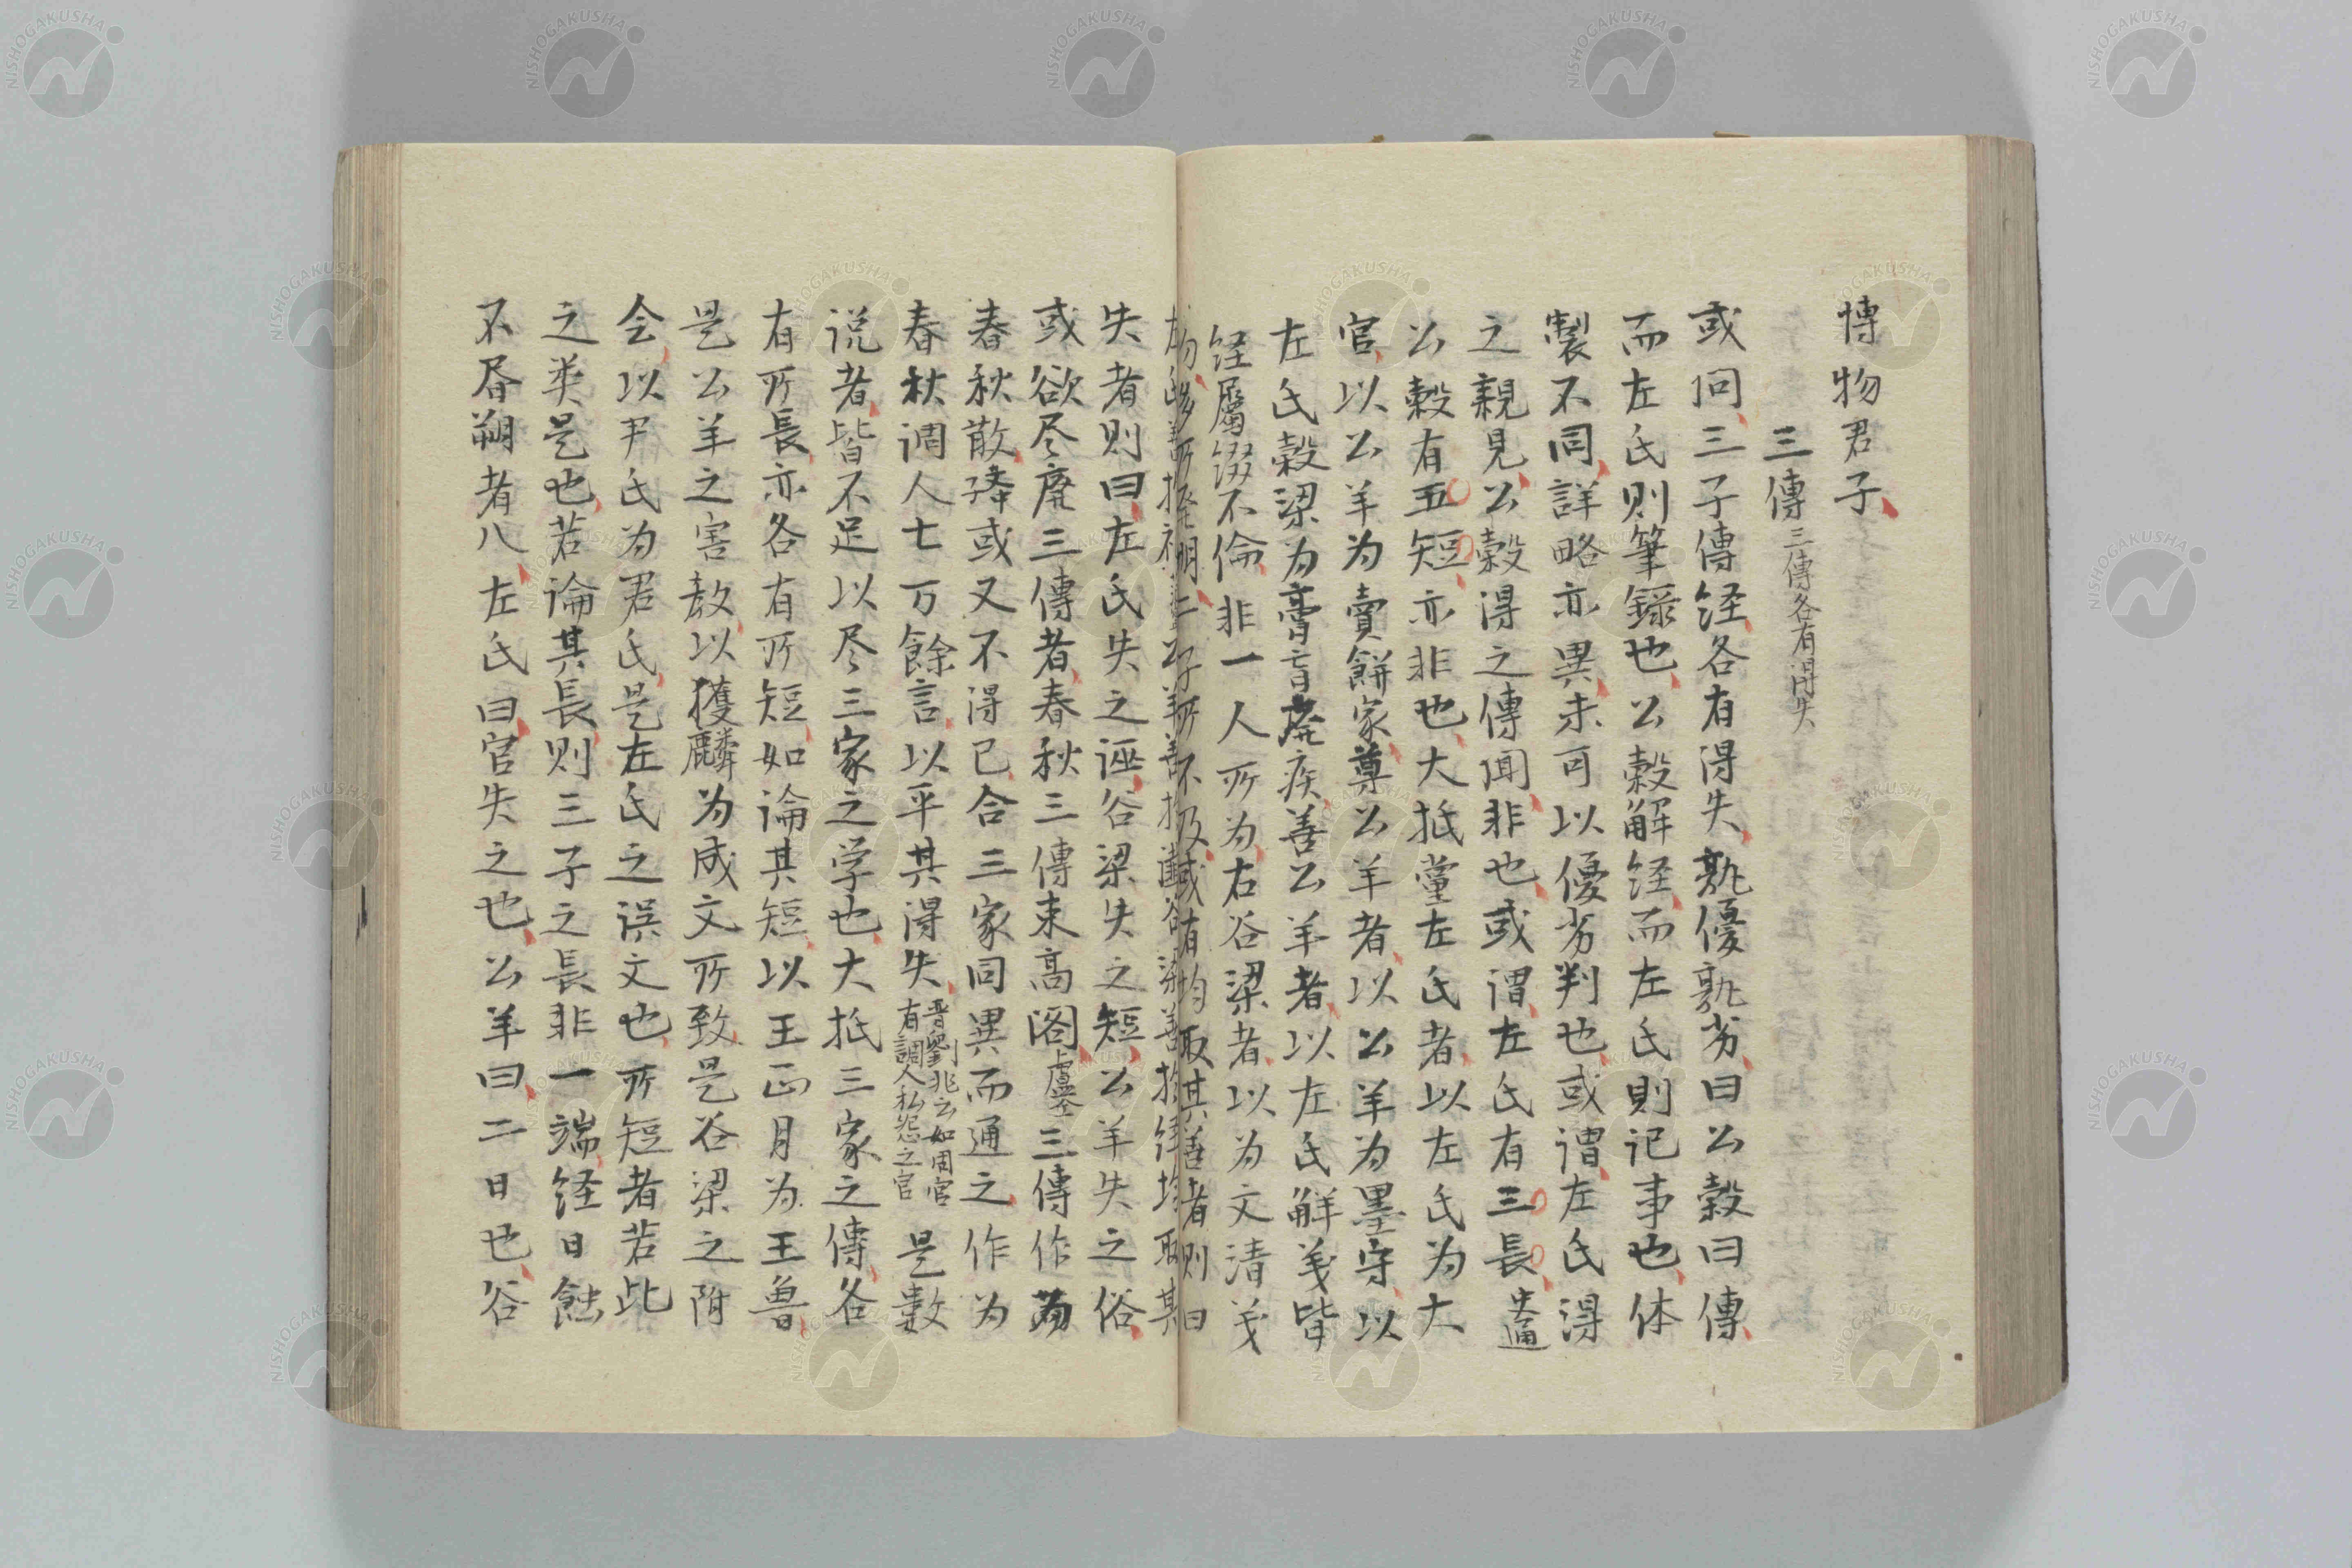 博物君子
三傳三傳各有得失
或问三子傳経各有得失孰優孰劣曰公穀曰傳
而左氏則筆録也公穀解経而左氏則记事也体
製不同詳略亦異未可以優劣判也或谓左氏得
之親見公穀得之傳闻非也或谓左氏有三長
公穀有五短亦非也大抵黨左氏者以左氏为大
官以公羊为賣餅家尊公羊者以公羊为墨守以
左氏穀梁为膏盲廃疾善公羊者以左氏解义皆
経屬缀不倫非一人所为右谷梁者以为文清义
失者则曰左氏失之诬谷梁失之短公羊失之俗
或欲尽废三傳者春秋三傳束高阁盧仝三傳作而
春秋散或又不得已合三家同異而通之作为
春秋调人七万餘言以平其得失晋劉兆云如周官有調人私怨之官是數
说者皆不足以尽三家之学也大抵三家之傳各
有所長亦各有所短如論其短以王正月为王魯
是公羊之害教以獲麟为成文所致是谷梁之附
会以尹氏为君氏是左氏之误文也所短者若此
之类是也若論其長则三子之長非一端経日蝕
不昏朔者八左氏曰官失之也公羊曰二日也谷